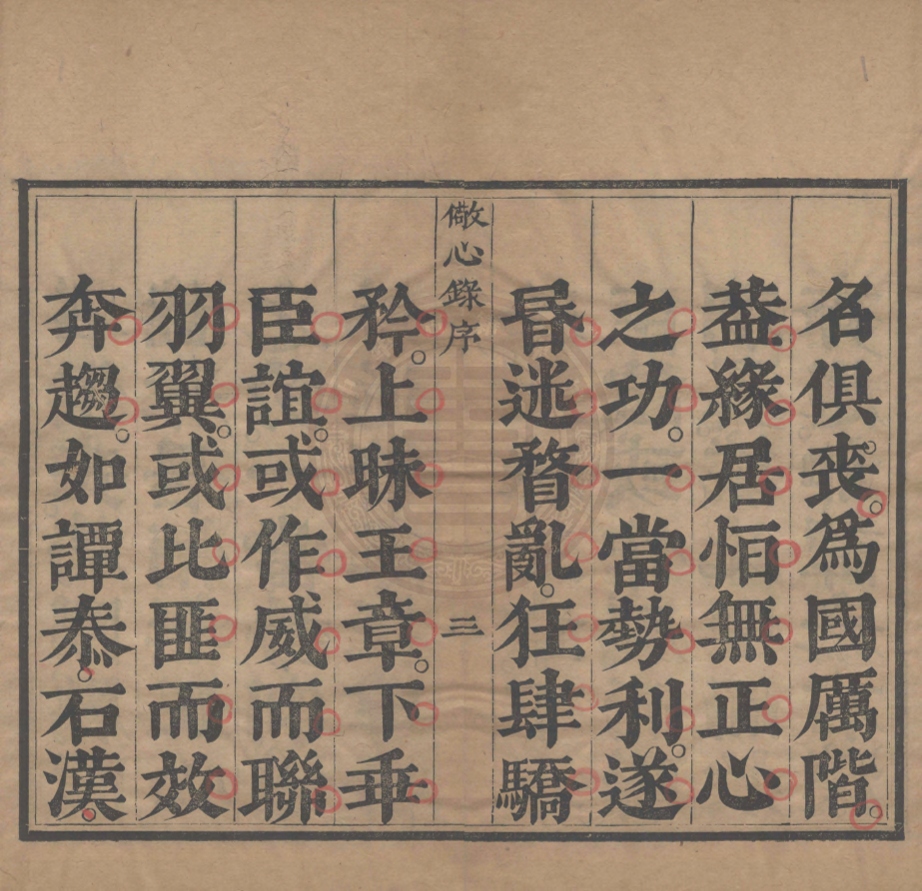 名俱丧。為國厲階。
葢緣居恒無正心
之功。一當勢利。遂
昬迷瞀亂。狂肆驕
儆心錄序
三
矜。上昧王章。下乖
臣誼。或作威而聯
羽翼。或比匪而效
奔趨。如譚泰。石漢